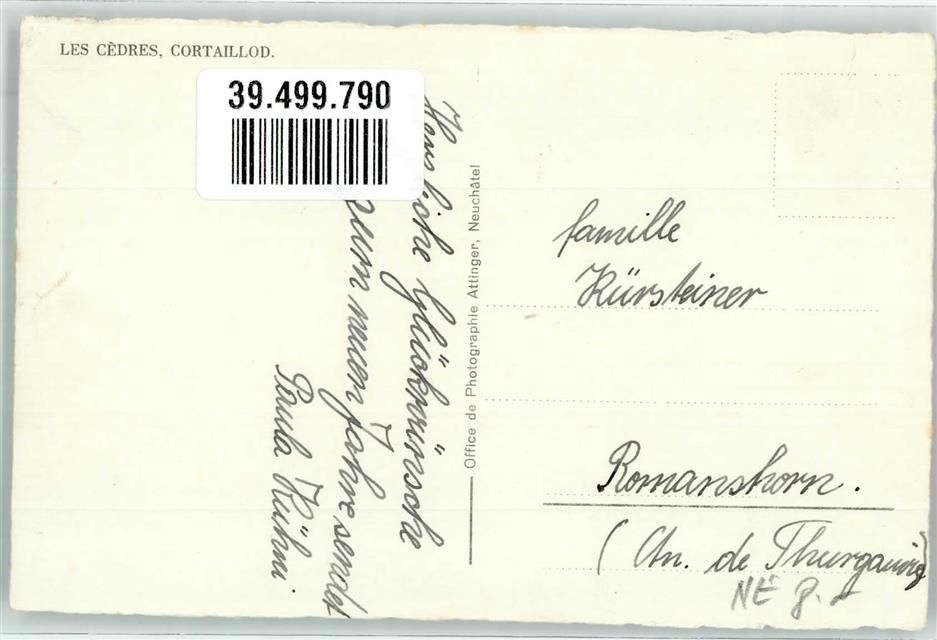 LES CÈDRES, CORTAILLOD.
39.499.790
Herzliche Glückwünsche
zum neuen Jahre sendet
Paula Kühni.
Office de Photographie Attinger, Neuchâtel
famille
Kürsteiner
Romanshorn.
(Ctn. de Thurgauvie)
NE